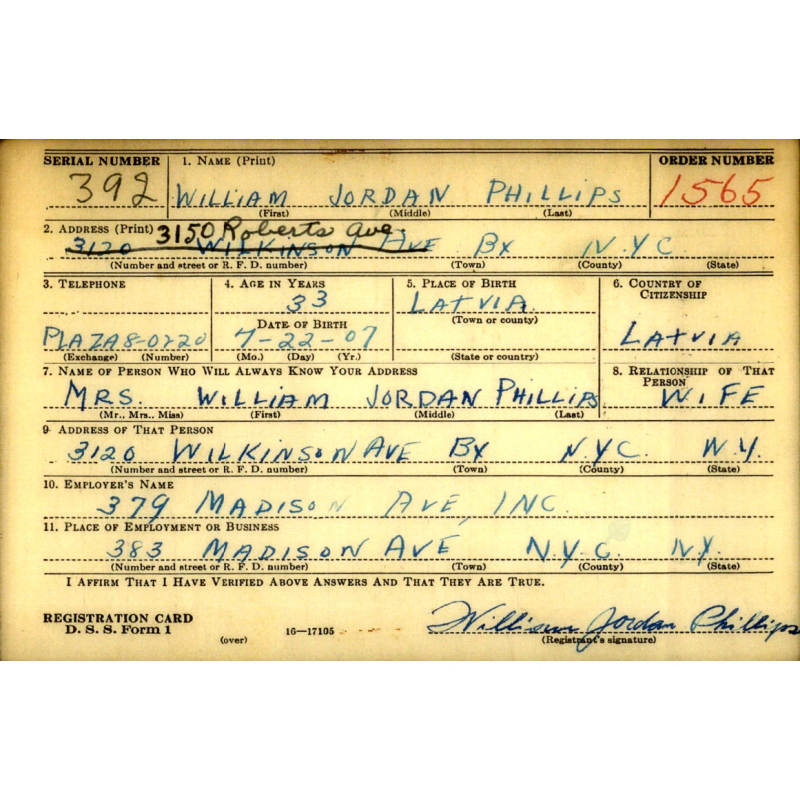 SERIAL NUMBER 1. NAME (Print) ORDER NUMBER
392 WILLIAM JORDAN PHILLIPS 1565
(First) (Middle) (Last)
2. ADDRESS (Print) 3150 Roberts Ave.
3120 WILKINSON AVE BX N.Y.C.
(Number and street or R. F. D. number) (Town) (County) (State)
3. TELEPHONE 4. AGE IN YEARS 5. PLACE OF BIRTH 6. COUNTRY OF CITIZENSHIP
33 LATVIA
DATE OF BIRTH (Town or county)
PLAZA 8-0220 7-22-07 LATVIA
(Exchange) (Number) (Mo.) (Day) (Yr.) (State or country)
7. NAME OF PERSON WHO WILL ALWAYS KNOW YOUR ADDRESS 8. RELATIONSHIP OF THAT PERSON
MRS. WILLIAM JORDAN PHILLIPS WIFE
(Mr., Mrs., Miss) (First) (Middle) (Last)
9 ADDRESS OF THAT PERSON
3120 WILKINSON AVE BX N.Y.C. N.Y.
(Number and street or R. F. D. number) (Town) (County) (State)
10. EMPLOYER'S NAME
379 MADISON AVE, INC.
11. PLACE OF EMPLOYMENT OR BUSINESS
383 MADISON AVE N.Y.C. N.Y.
(Number and street or R. F. D. number) (Town) (County) (State)
I AFFIRM THAT I HAVE VERIFIED ABOVE ANSWERS AND THAT THEY ARE TRUE.
REGISTRATION CARD
D. S. S. Form 1 (over) 16—17105 William Jordan Phillips
(Registrant's signature)